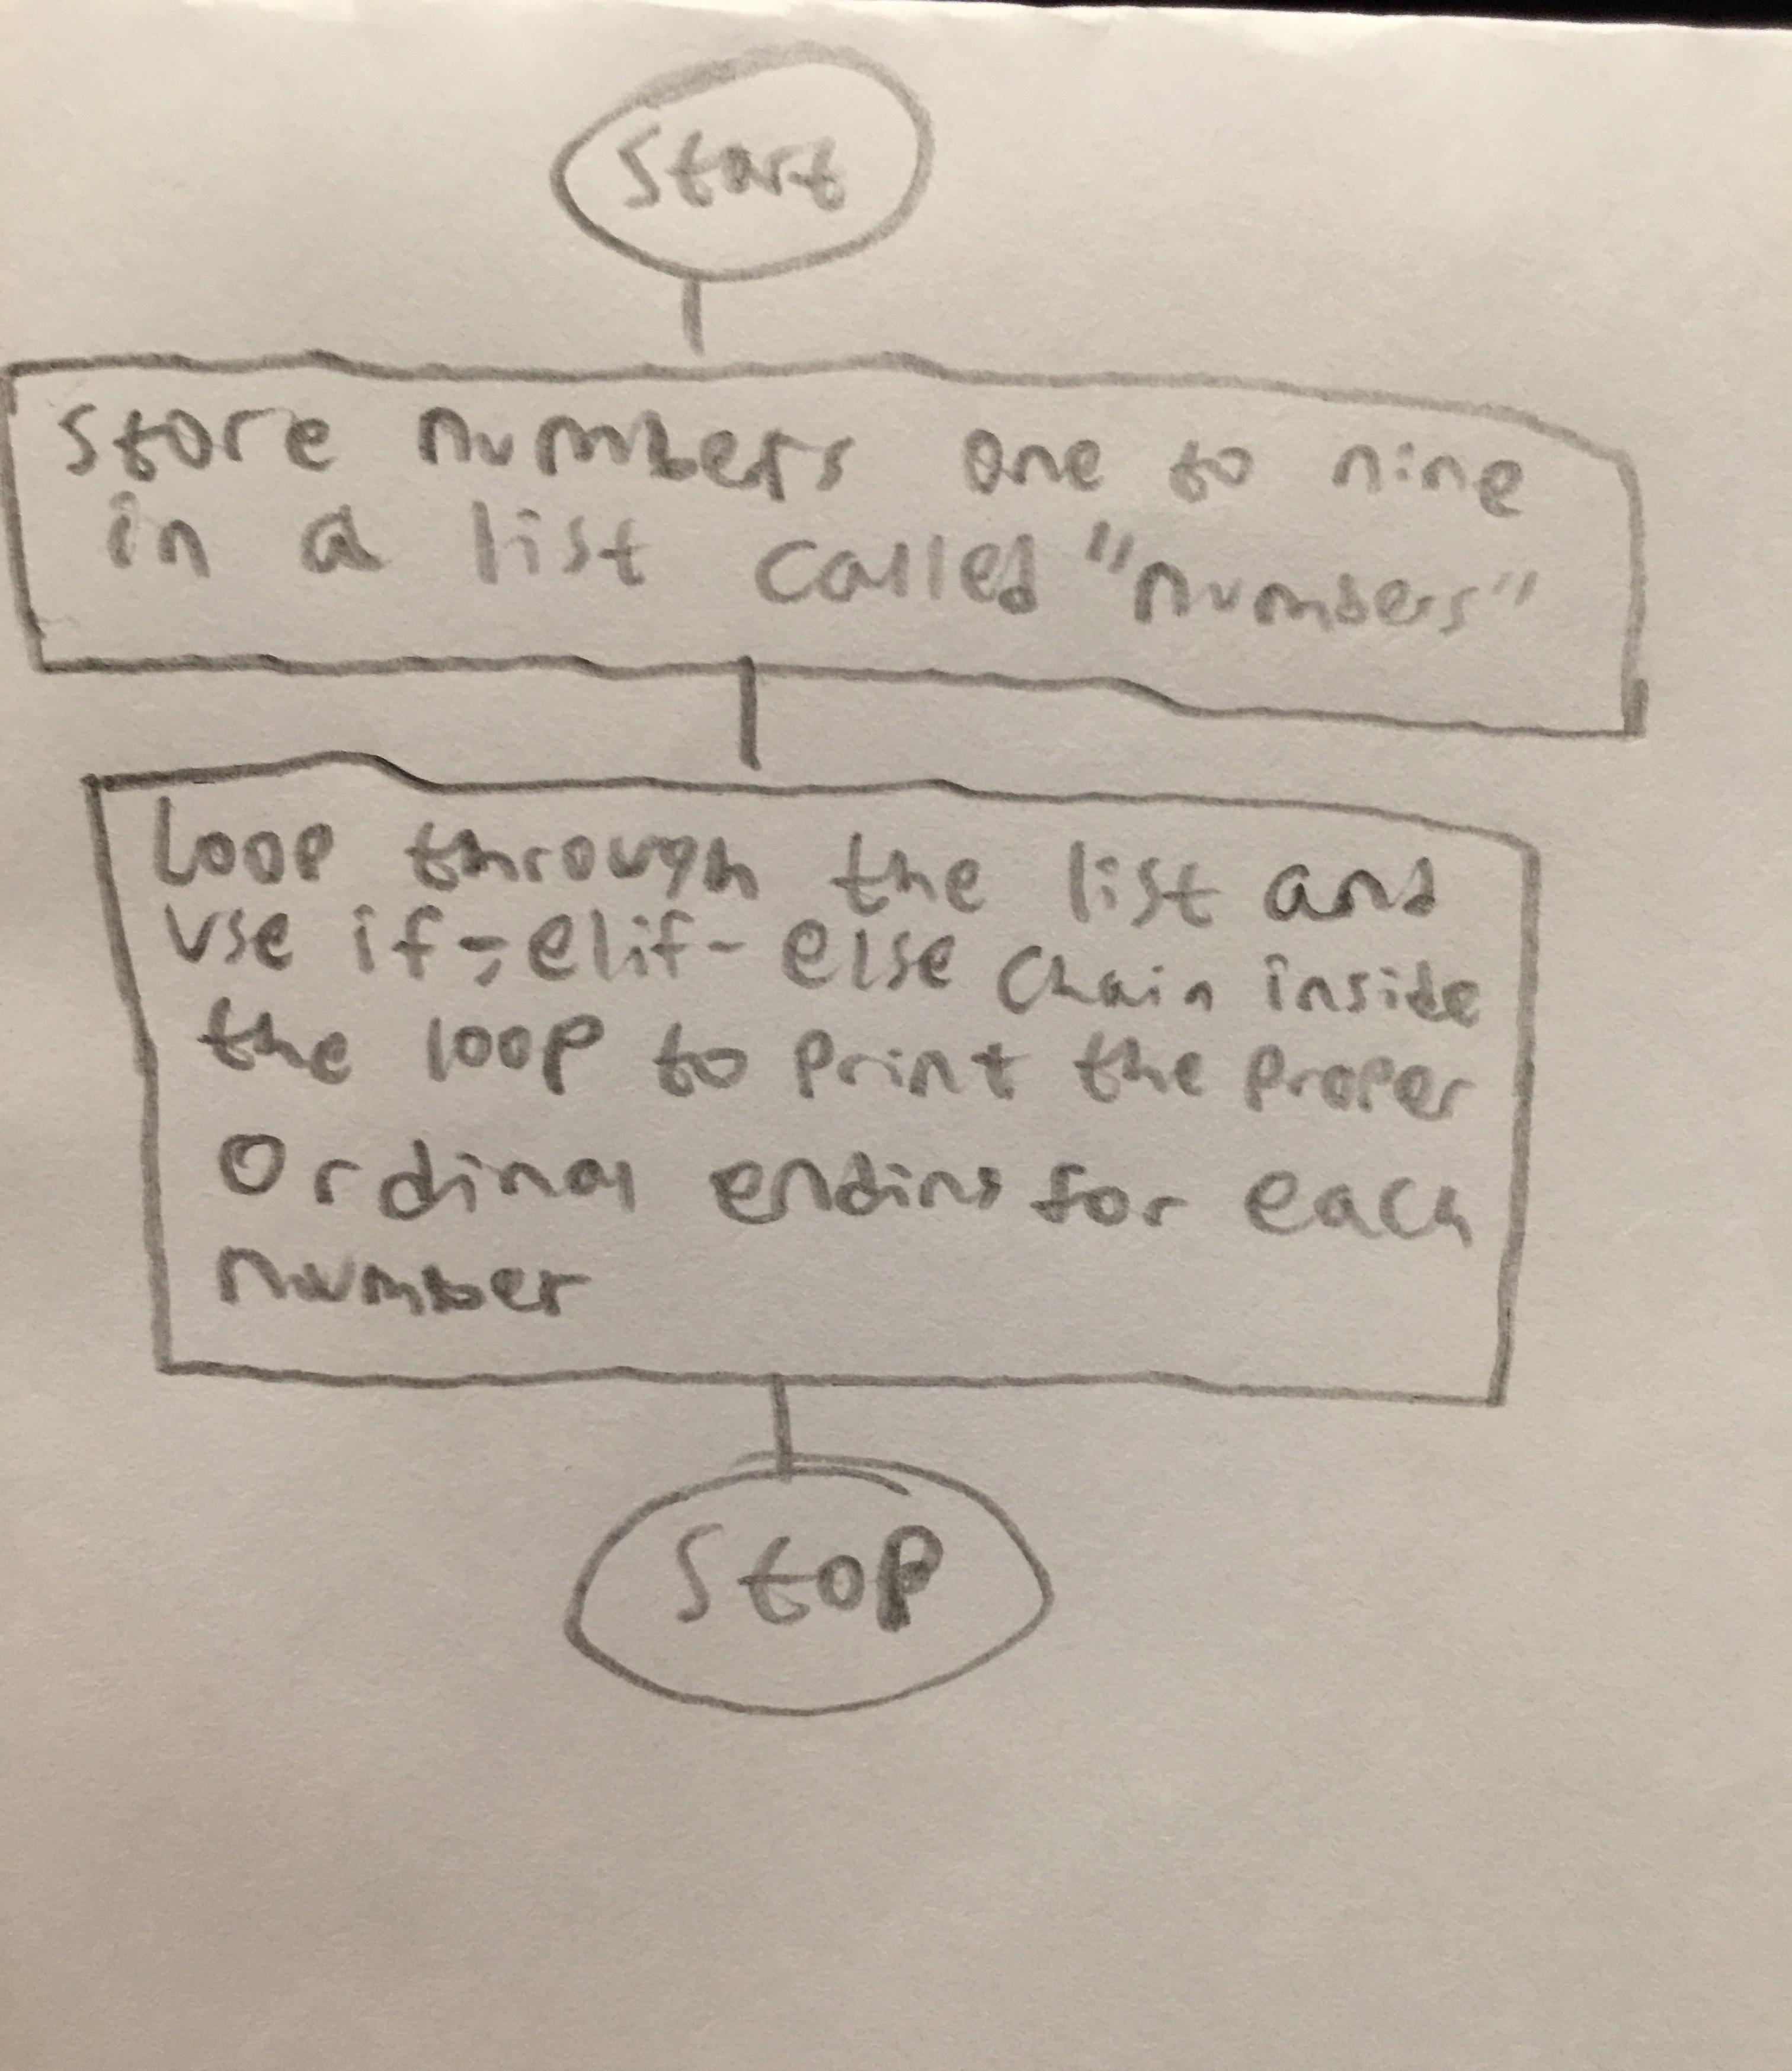 Start
Store numbers one to nine
in a list called "numbers"
Loop through the list and
use if-elif-else chain inside
the loop to print the proper
Ordinal ending for each
number
Stop